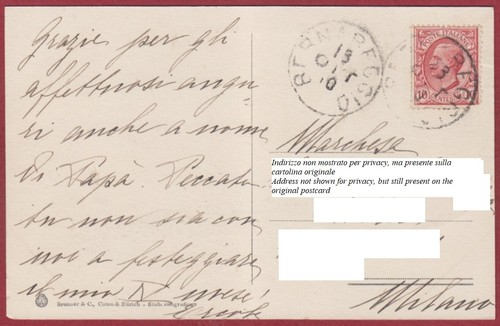 Grazie per gli
affettuosi augu
ri anche a nome
di Papà. Peccato
tu non sia con
noi a festeggiare
il mio
BERNAREGGIO
13
OTT
10
POSTE ITALIANE
10
Marchesa
Indirizzo non mostrato per privacy, ma presente sulla
cartolina originale
Address not shown for privacy, but still present on the
original postcard
Milano
Brunner & C., Como & Zürich - Stab. eliografico